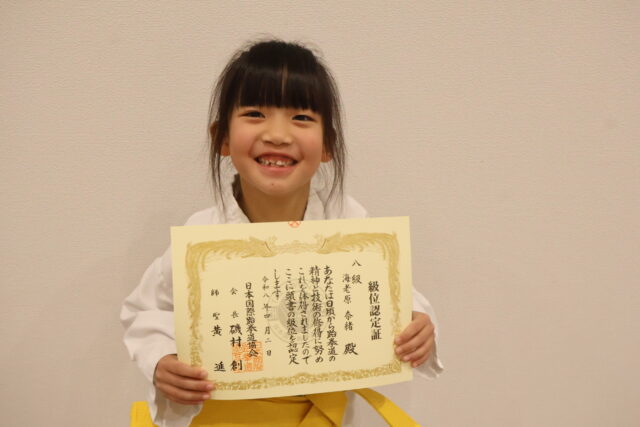 級位認定証
八級
海老原 奈緒 殿
あなたは日頃から跆拳道の
精神と技術の修得に努め
これを体得されましたので
ここに頭書の級位を認定
します
令和八年四月二日
日本国際跆拳道協会
会長 磯村 創
師聖 黄 進